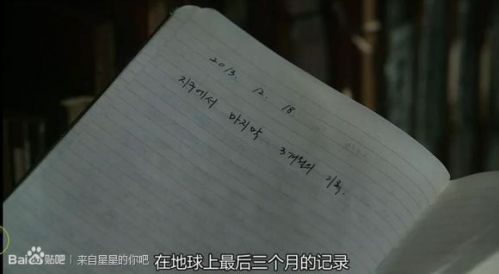 2013. 12. 18
지구에서 마지막 3개월의 기록.
在地球上最后三个月的记录
Bai du 贴吧 | 来自星星的你吧